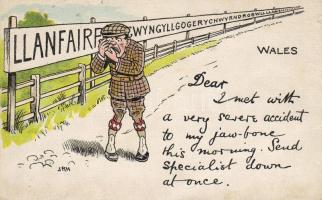 LLANFAIRP WYNGYLLGOGERYCHWYRNDROBWLL
WALES
Dear
I met with
a very severe accident
to my jaw-bone
this morning. Send
Specialist down
at once.